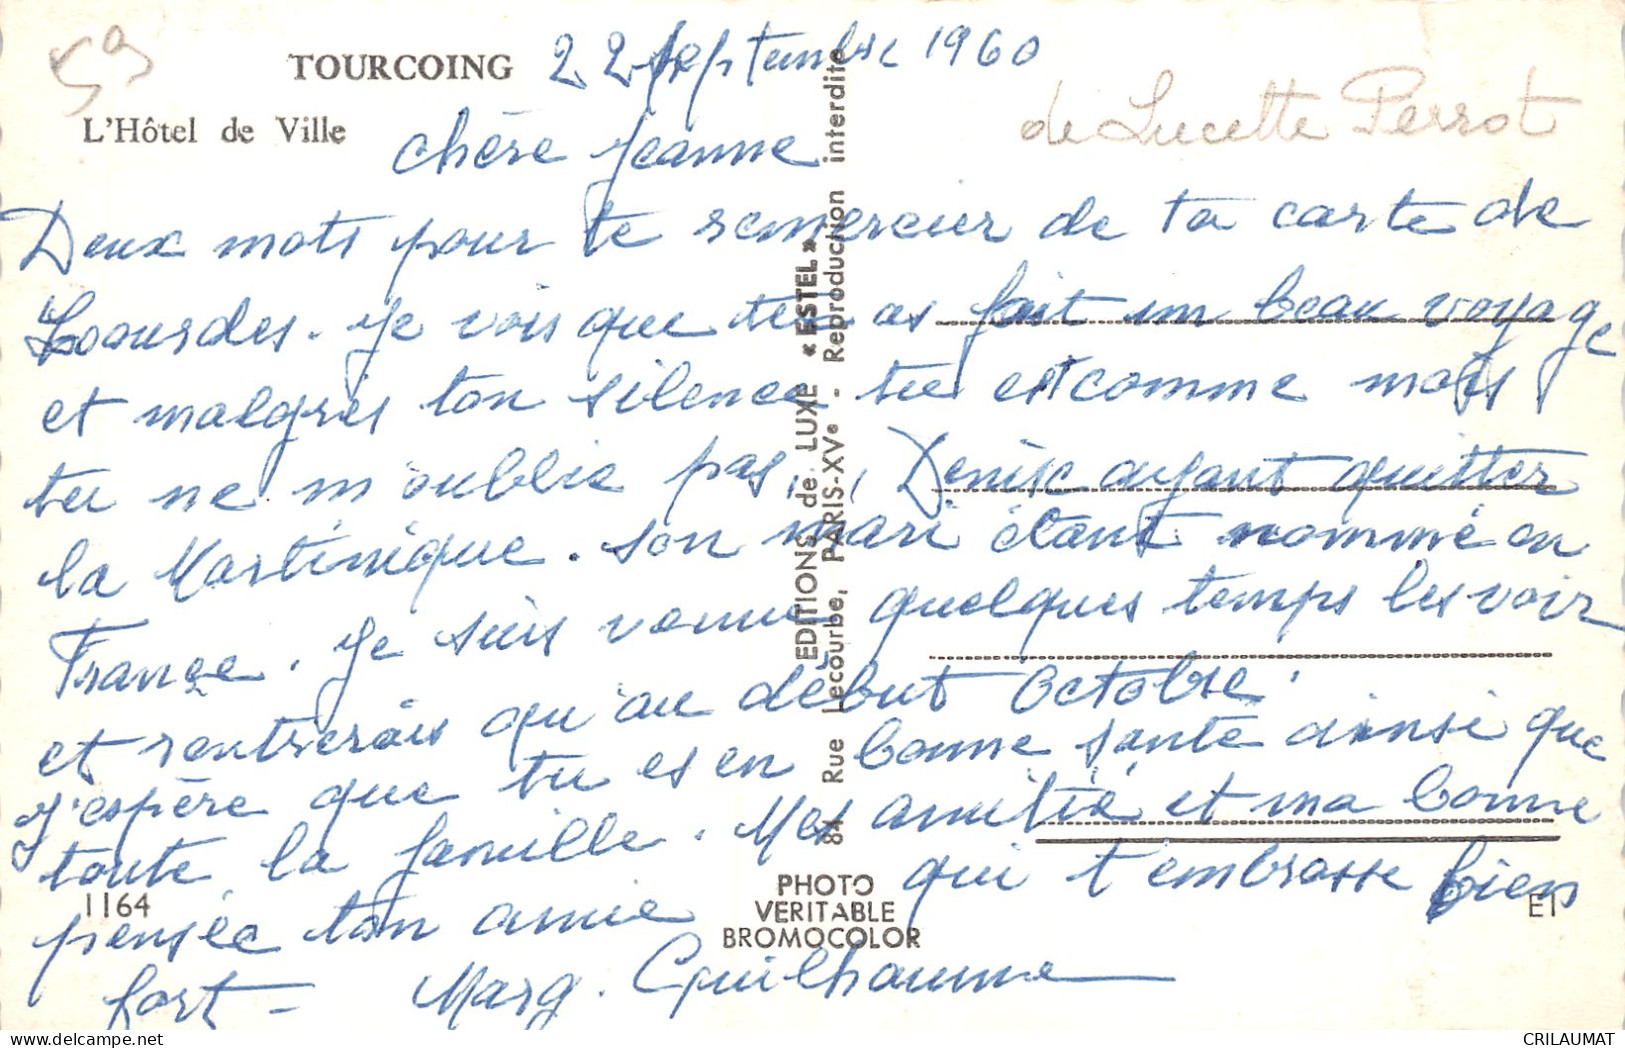 TOURCOING 22 Septembre 1960
L'Hôtel de Ville
de Lucette Perrot
chère Jeanne
Deux mots pour te remercier de ta carte de
Lourdes. Je vois que tu as fait un beau voyage
et malgrés ton silence tu est comme mois
tu ne m'oublie pas, Denise ayant quitter
la Martinique. Son mari étant nommé en
France. Je suis venue quelques temps les voir
et rentrerais qu'au début Octobre.
J'espère que tu es en bonne santé ainsi que
toute la famille. Mes amitié et ma bonne
pensée ton amie qui t'embrasse bien
fort - Marg. Guilhaume
EDITIONS de LUXE « ESTEL »
84 Rue Lecourbe, PARIS-XVe - Reproduction interdite
1164
PHOTO
VERITABLE
BROMOCOLOR
E1
CRILAUMAT